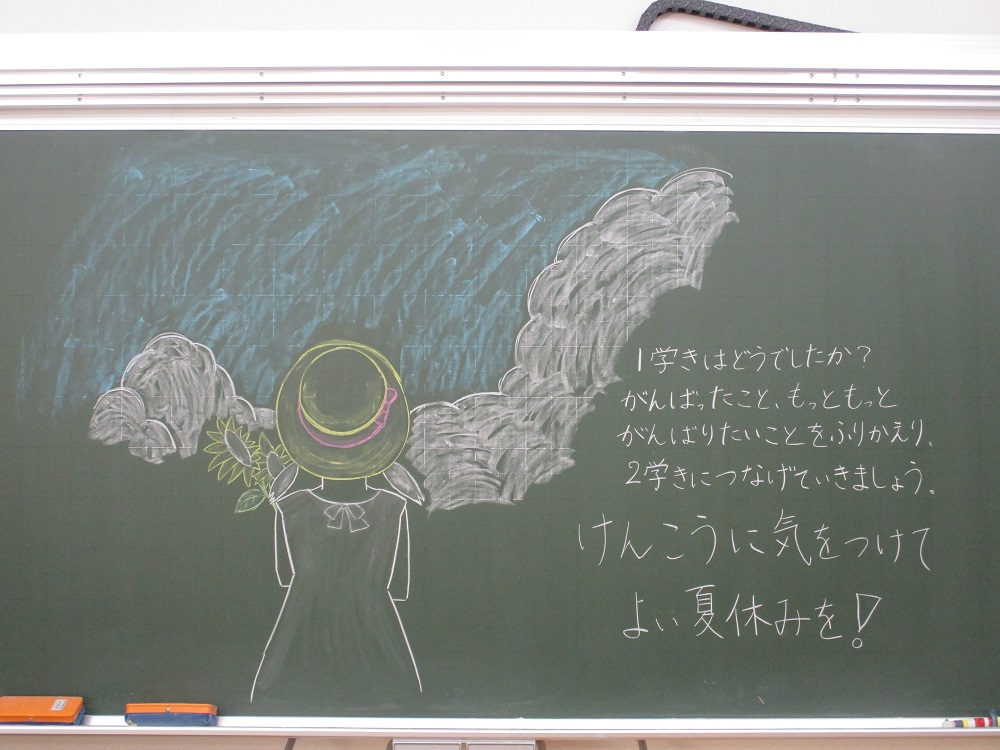 1学きはどうでしたか?
がんばったこと、もっともっと
がんばりたいことをふりかえり、
2学きにつなげていきましょう。
けんこうに気をつけて
よい夏休みを!